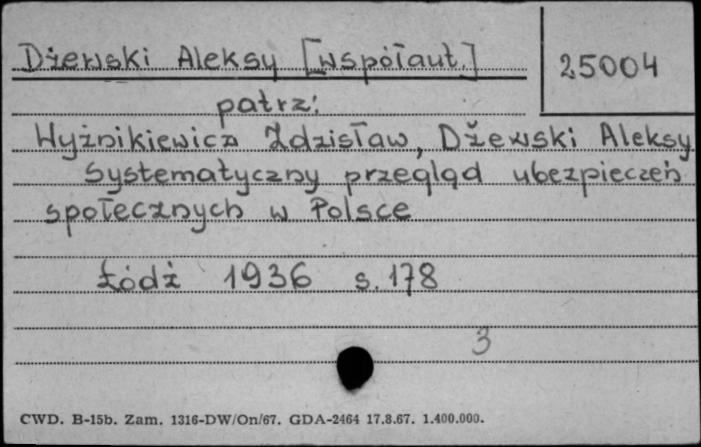 Dżewski Aleksy [współaut.]
25004
patrz:
Wyżnikiewicz Zdzisław, Dżewski Aleksy
Systematyczny przegląd ubezpieczeń
społecznych w Polsce
Łódź 1936 s. 178
3
CWD. B-15b. Zam. 1316-DW/On/67. GDA-2464 17.8.67. 1.400.000.